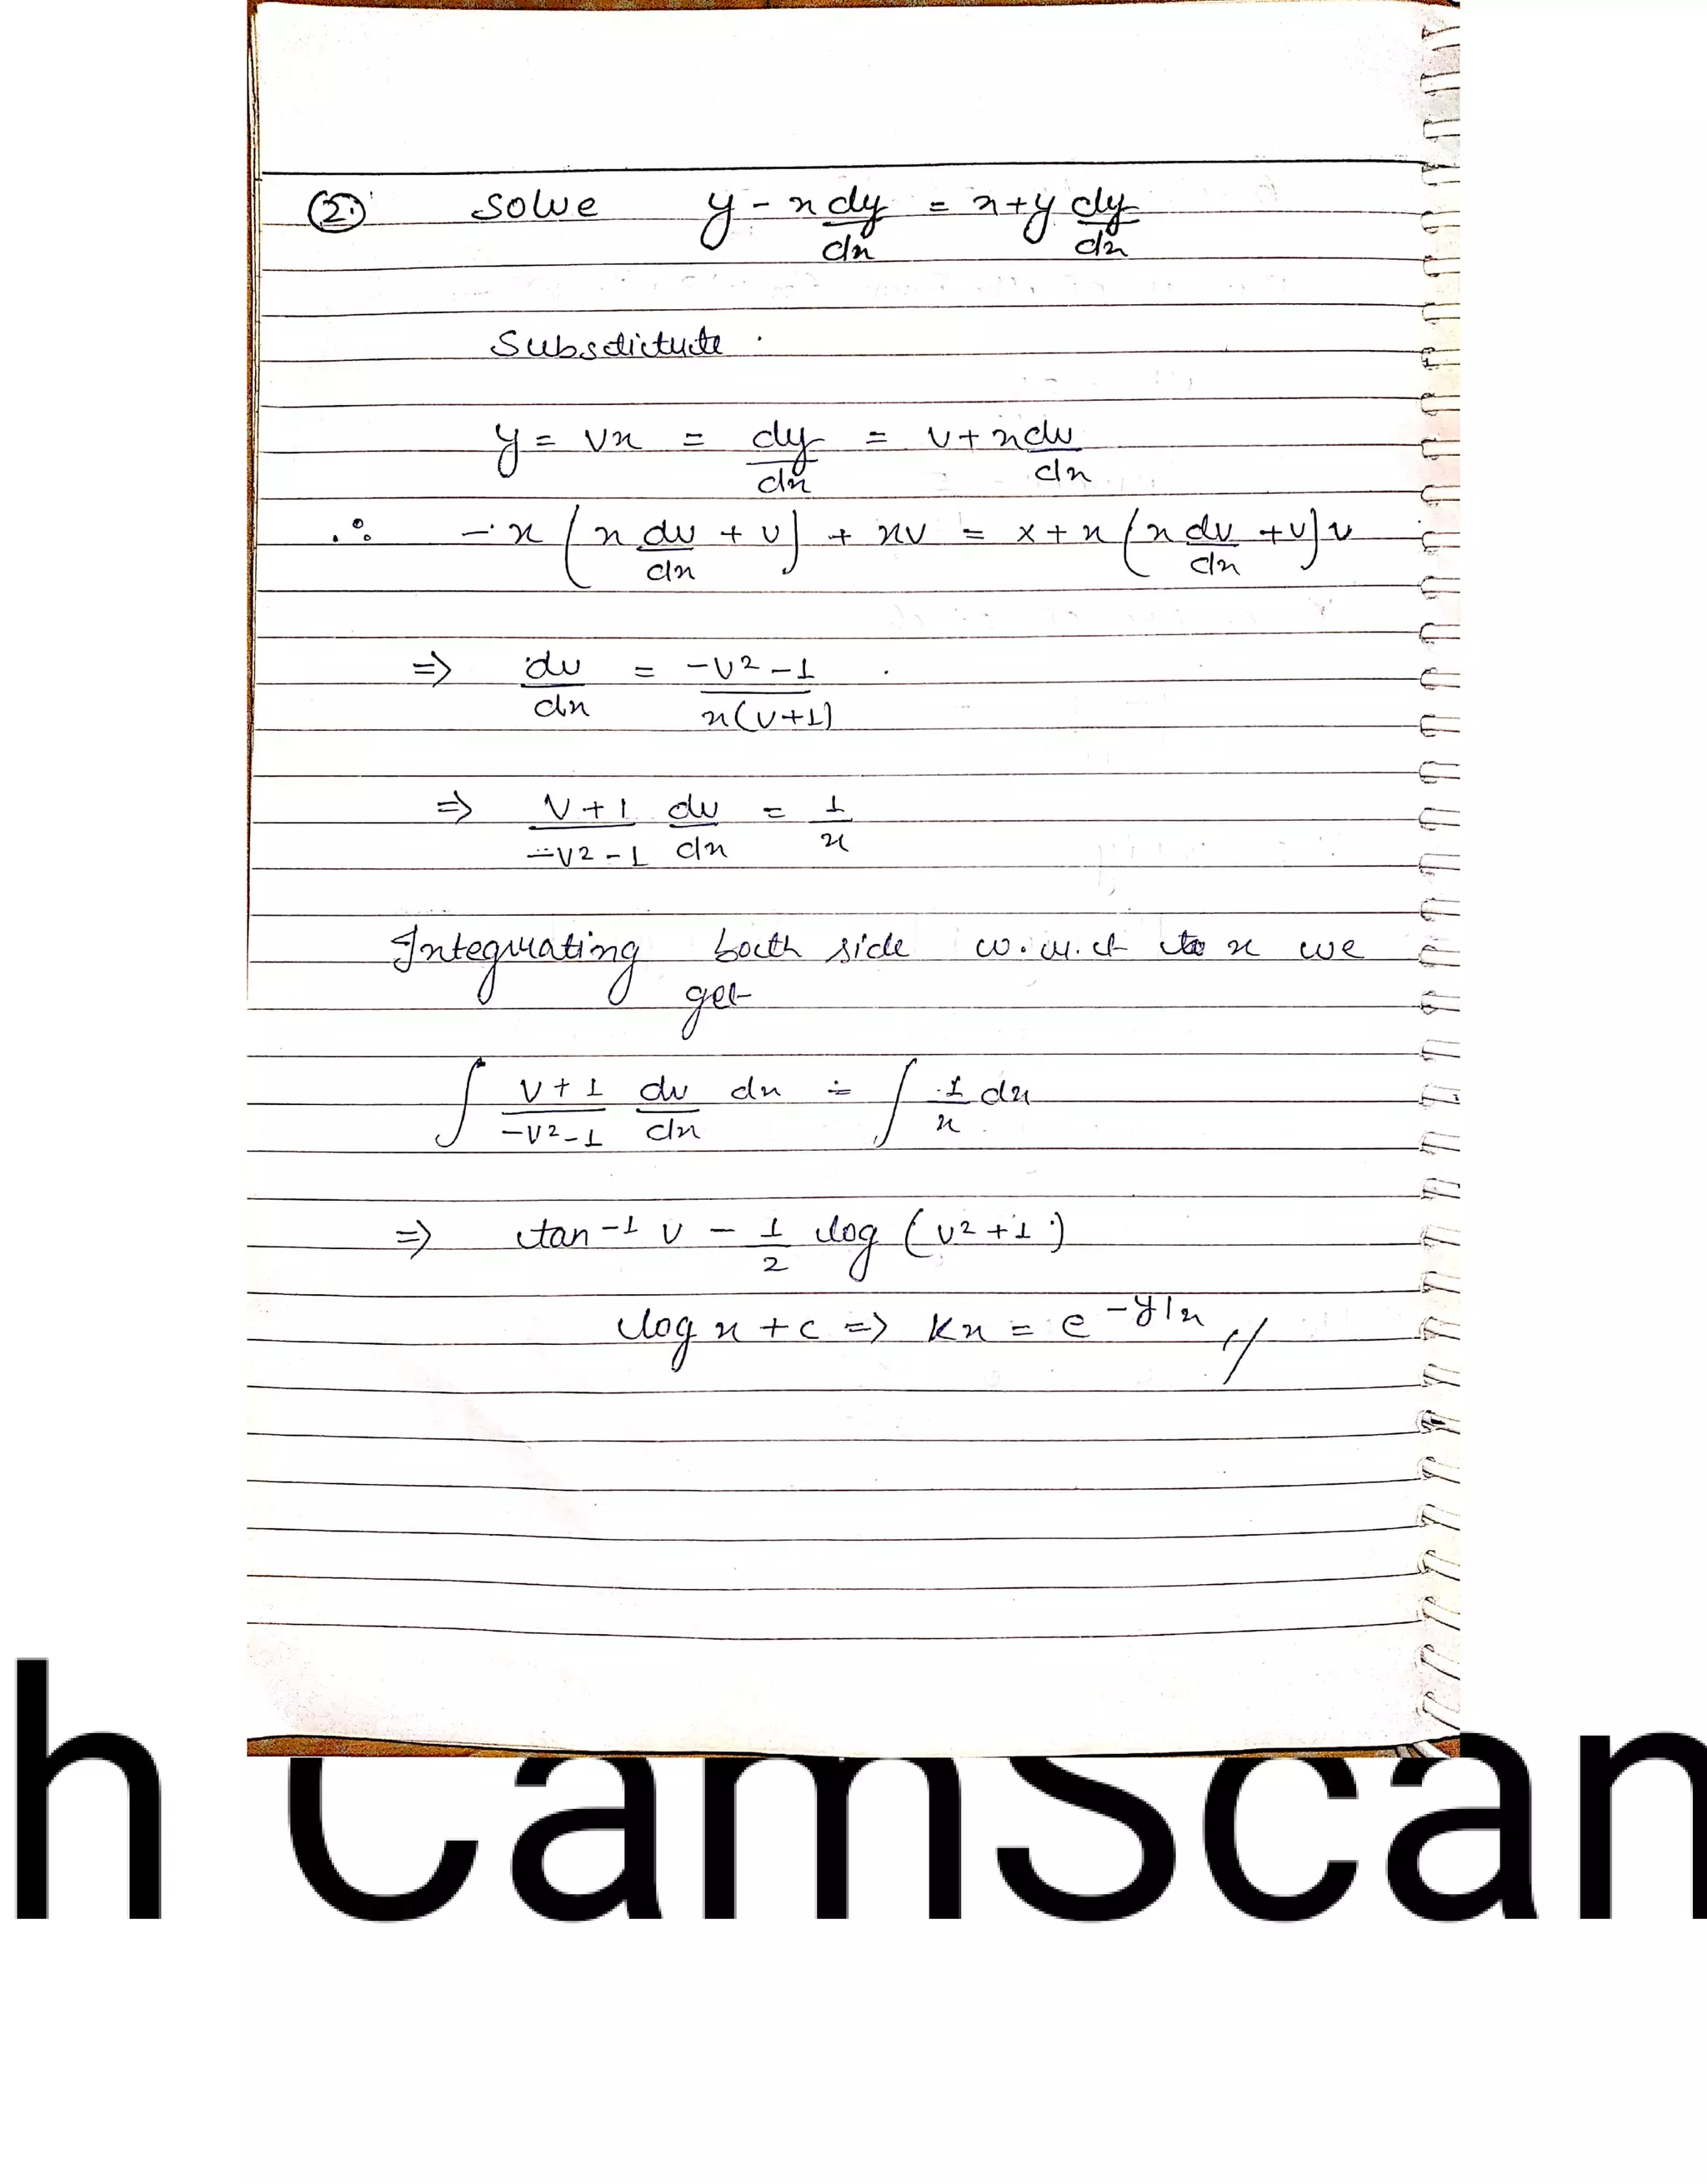 (2.) Solve y - x dy/dx = x + y dy/dx
Substitute.
y = vx = dy/dx = v + x dv/dx
∴ - x (x dv/dx + v) + xv = x + x (x dv/dx + v) v
⇒ dv/dx = -v² - 1 / x(v+1)
⇒ v+1 / -v² - 1 dv/dx = 1/x
Integrating both side w.r.t to x we
get
∫ v+1 / -v² - 1 dv/dx dx = ∫ 1/x dx
⇒ tan -1 v - 1/2 log (v² + 1)
log x + c ⇒ kx = e -y/x //
h CamScan